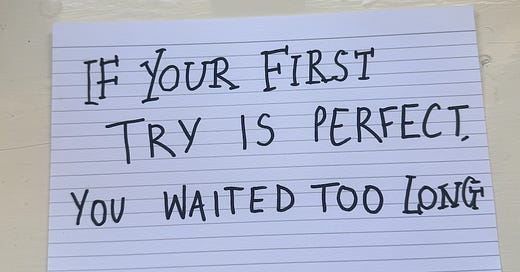 IF YOUR FIRST
TRY IS PERFECT,
YOU WAITED TOO LONG